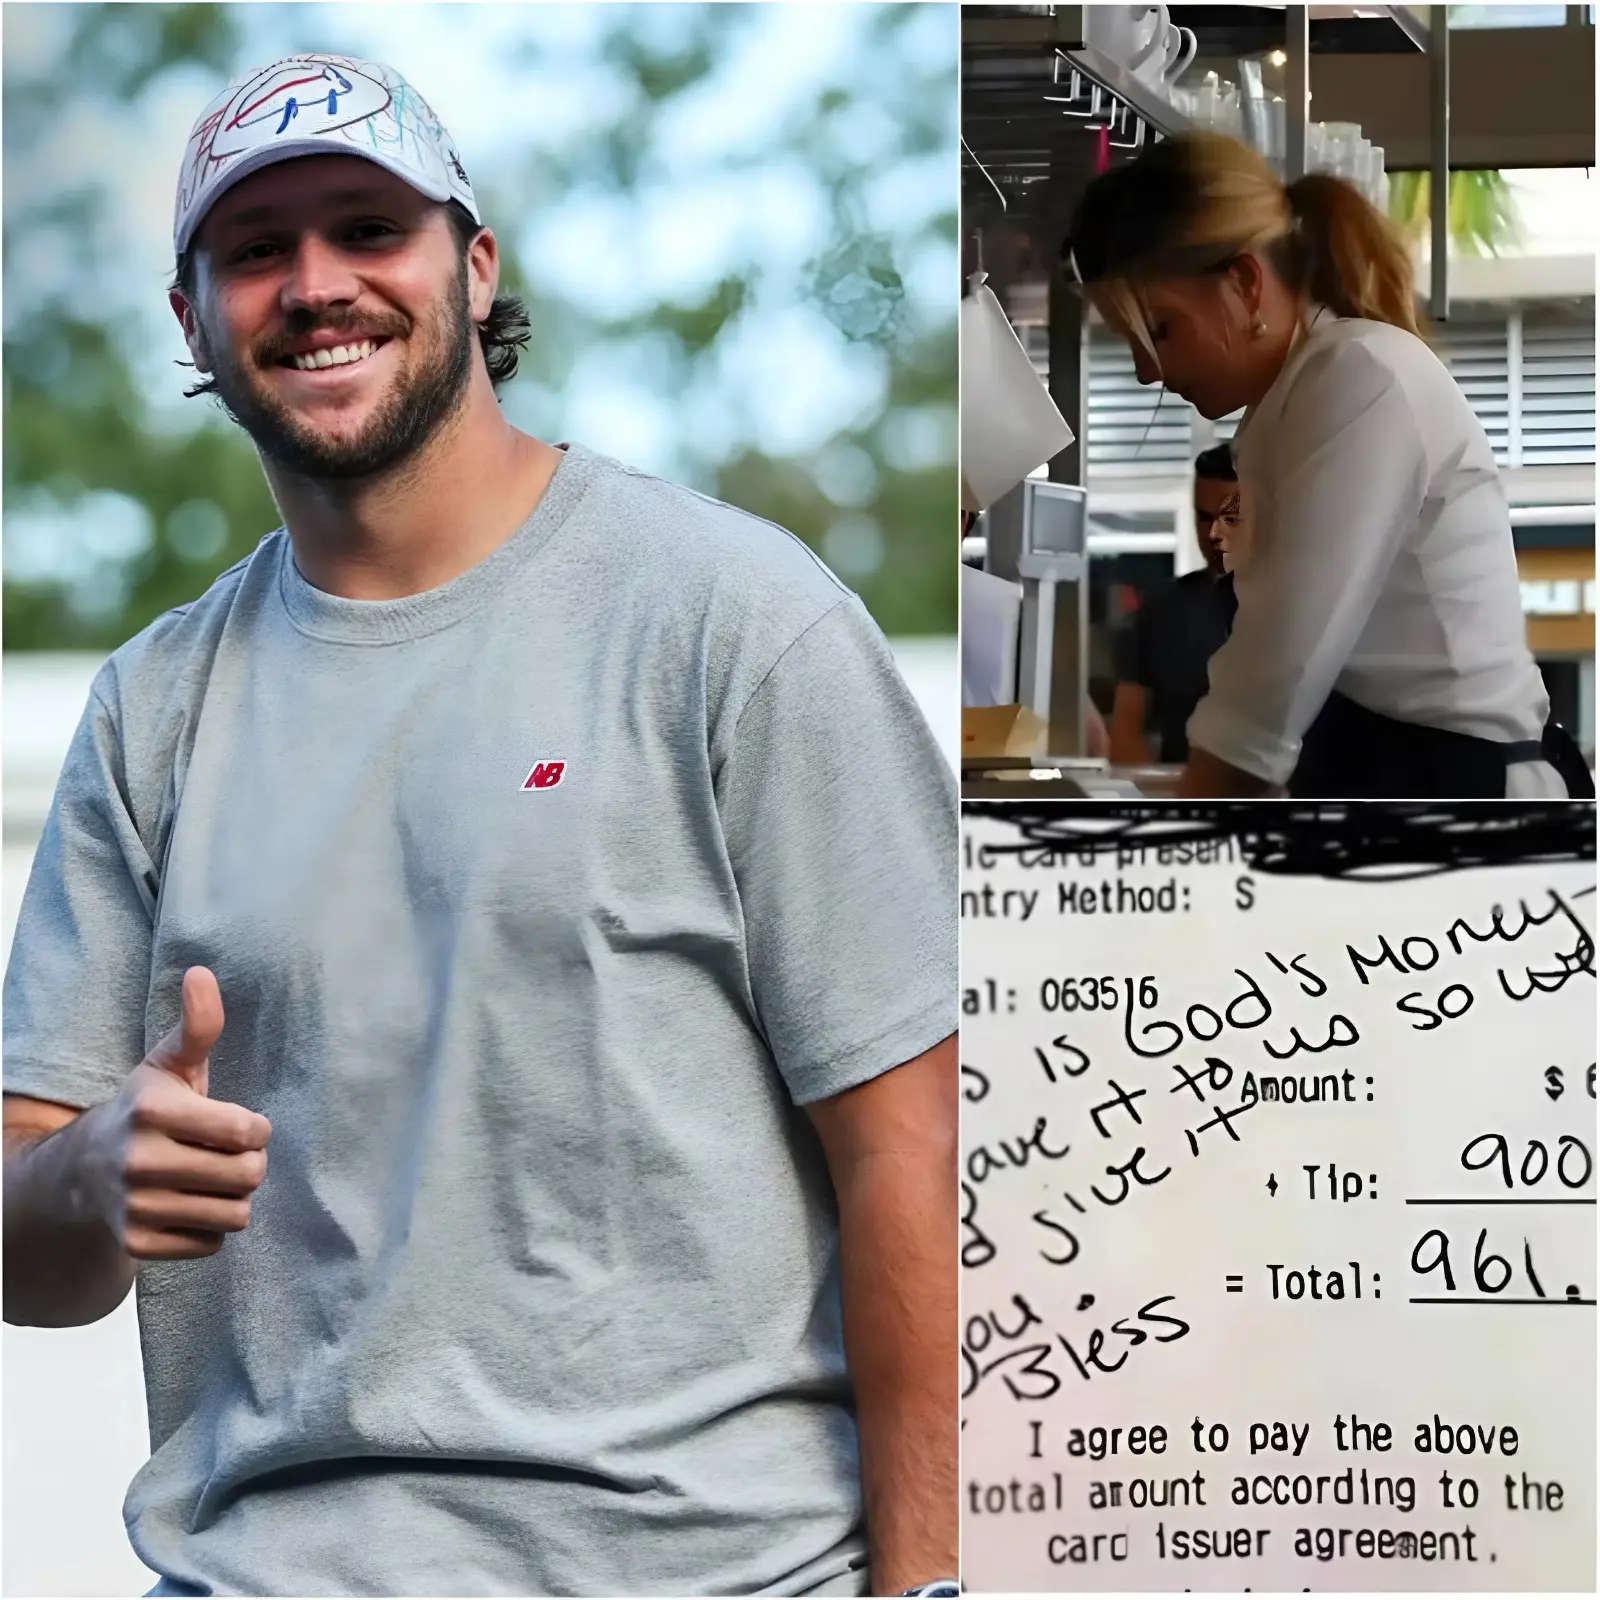 NB
card present
ntry Method: S
al: 063516
is God's Money
gave it to us so we
give it
you.
Bless
Amount: $ 6
+ Tip: 900
= Total: 961.
I agree to pay the above
total amount according to the
card issuer agreement.